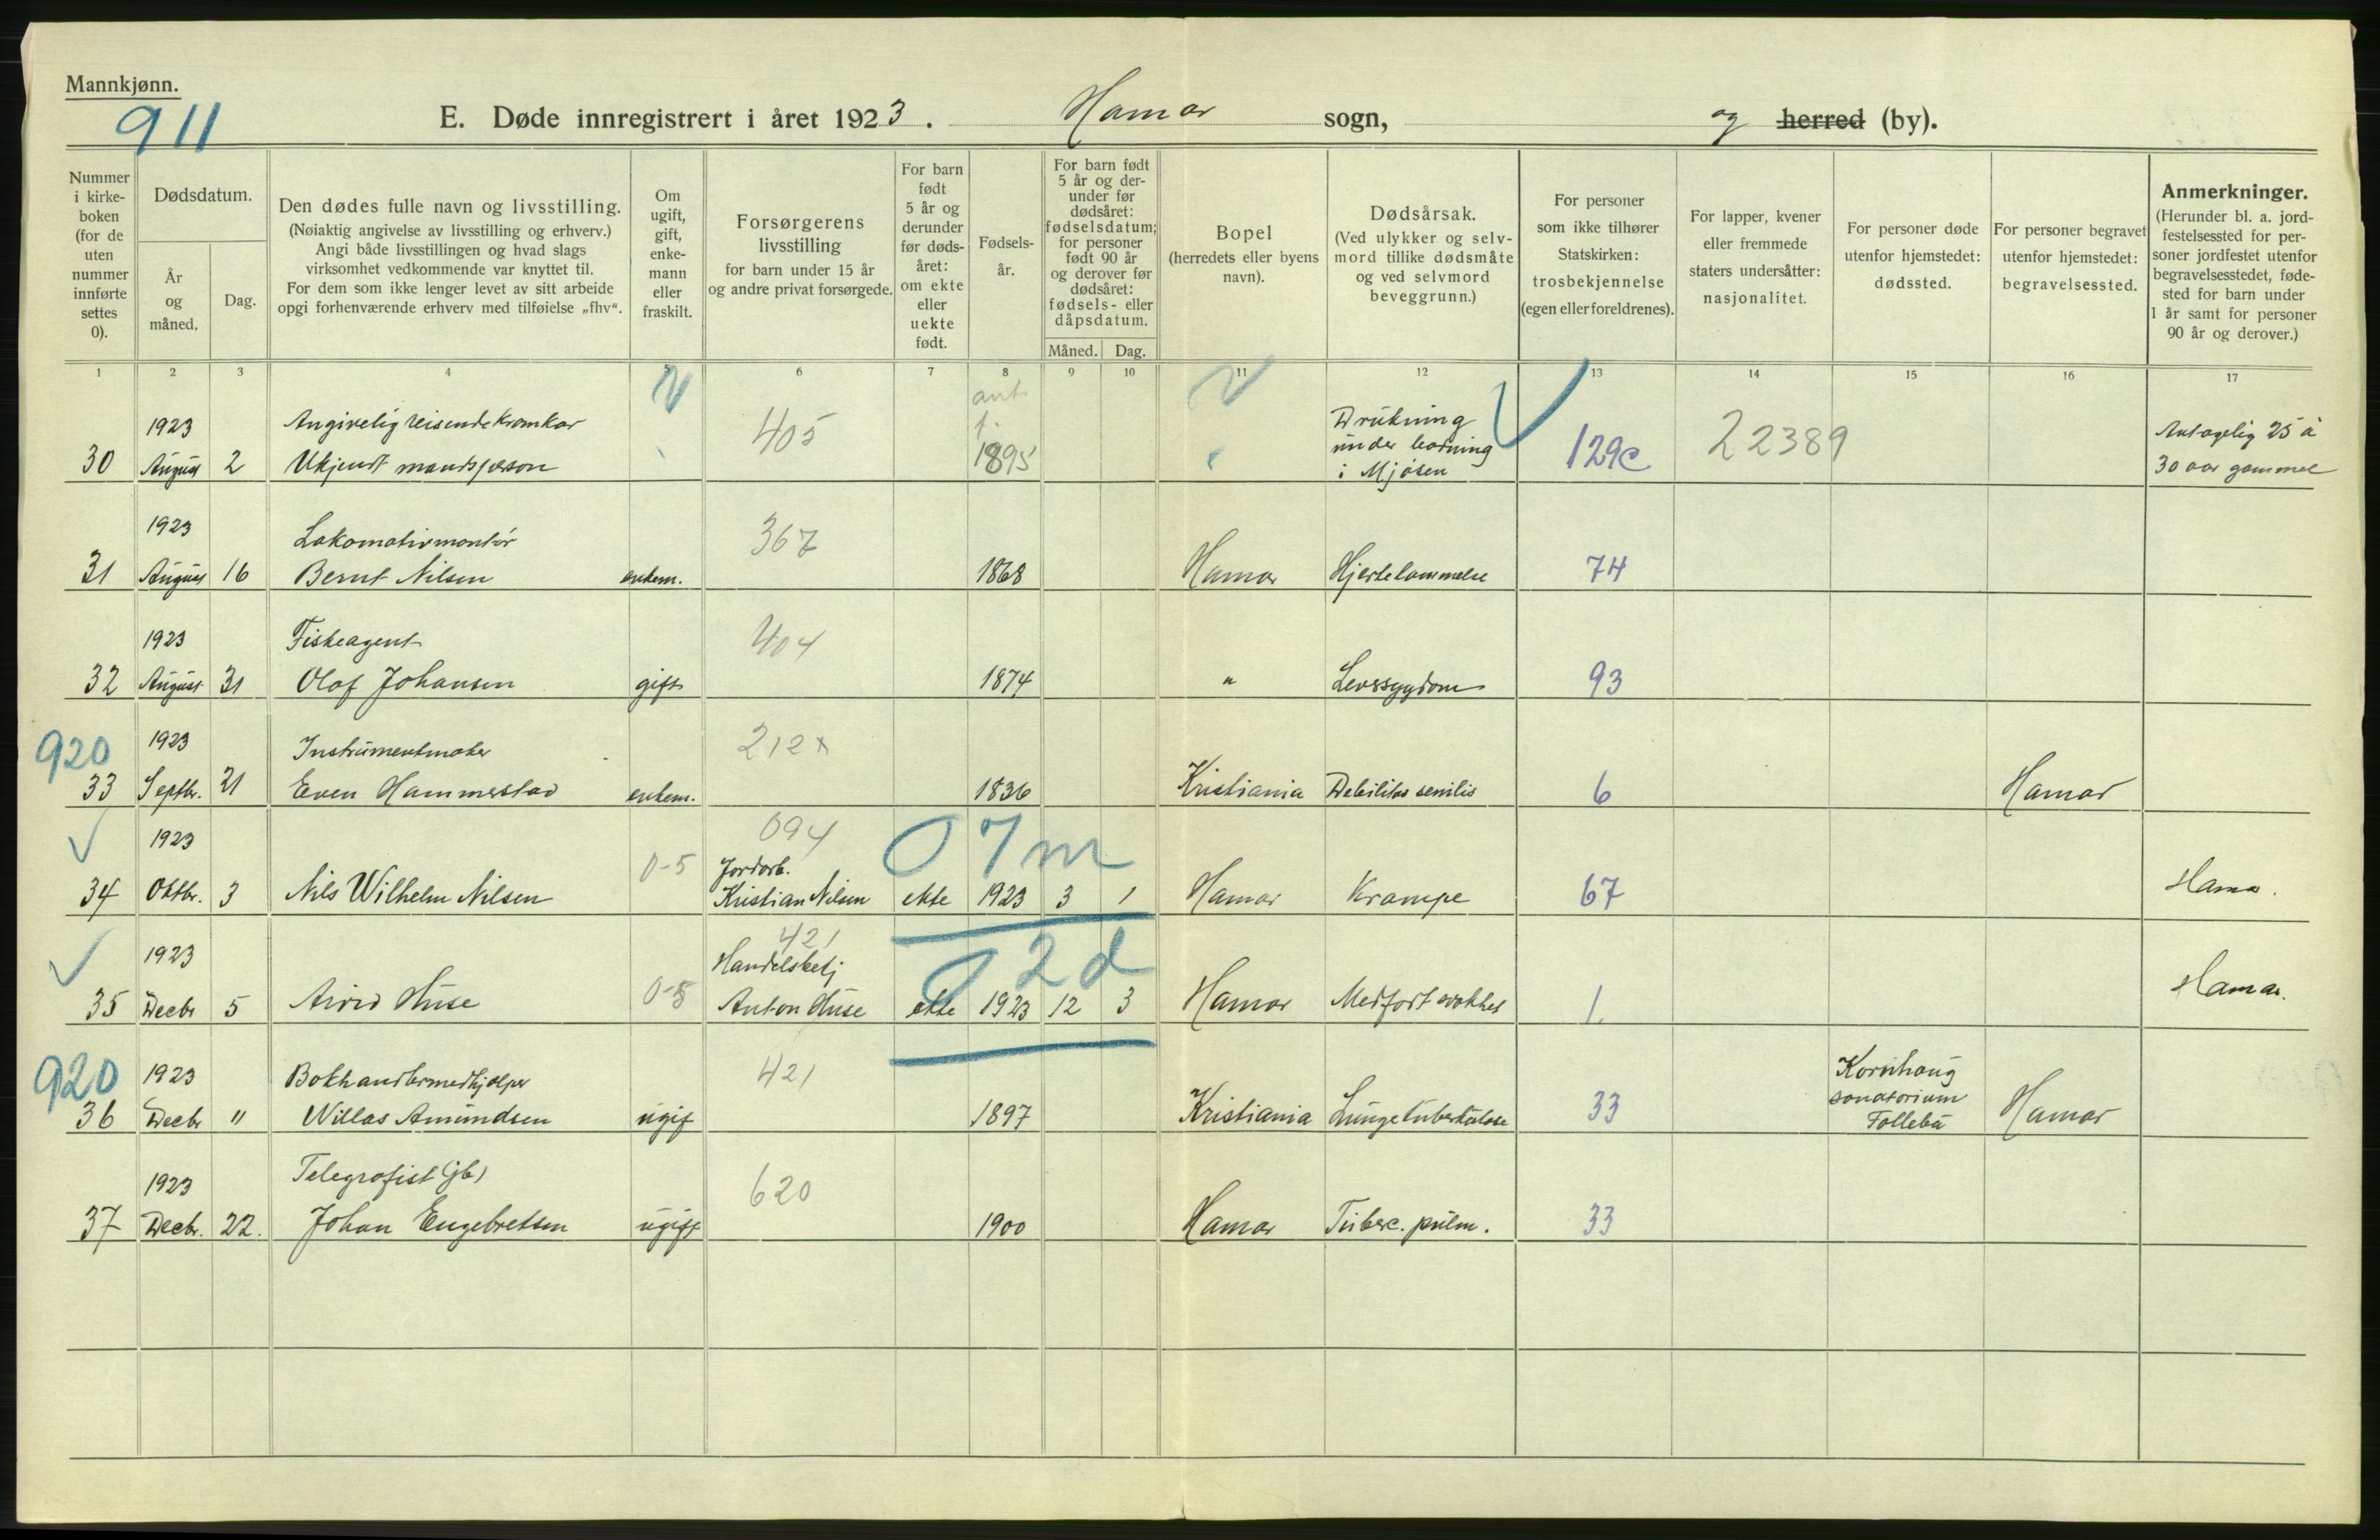 Mannkjønn.
911
E. Døde innregistrert i året 1923. Hamar sogn, og herred (by).
Nummer i kirkeboken (for de uten nummer innførte settes 0).
Dødsdatum.
År og måned.
Dag.
Den dødes fulle navn og livsstilling.
(Nøiaktig angivelse av livsstilling og erhverv.)
Angi både livsstillingen og hvad slags
virksomhet vedkommende var knyttet til.
For dem som ikke lenger levet av sitt arbeide
opgi forhenværende erhverv med tilføielse „fhv“.
Om ugift, gift, enkemann eller fraskilt.
Forsørgerens livsstilling
for barn under 15 år
og andre privat forsørgede.
For barn født 5 år og derunder før dødsåret: om ekte eller uekte født.
Fødselsår.
For barn født 5 år og derunder før dødsåret: fødselsdatum; for personer født 90 år og derover før dødsåret: fødsels- eller dåpsdatum.
Måned. Dag.
Bopel
(herredets eller byens navn).
Dødsårsak.
(Ved ulykker og selvmord tillike dødsmåte og ved selvmord beveggrunn.)
For personer som ikke tilhører Statskirken: trosbekjennelse (egen eller foreldrenes).
For lapper, kvener eller fremmede staters undersåtter: nasjonalitet.
For personer døde utenfor hjemstedet: dødssted.
For personer begravet utenfor hjemstedet: begravelsessted.
Anmerkninger.
(Herunder bl. a. jordfestelsessted for personer jordfestet utenfor begravelsesstedet, fødested for barn under 1 år samt for personer 90 år og derover.)
1 2 3 4 5 6 7 8 9 10 11 12 13 14 15 16 17
1923 Angivelig reisende kramkar 405 ant. Drukning
30 August 2 Ukjendt mandsperson 1895 under badning i Mjøsen 129c 22389 Antagelig 25 à 30 aar gammel
1923 Lokomotivmontør 367
31 August 16 Bernt Nilsen enkem. 1868 Hamar Hjertelammelse 74
1923 Fiskeagent 404
32 August 31 Olaf Johansen gift 1874 " Leversygdom 93
920 1923 Instrumentmaker 212x
33 Septbr. 21 Even Hammerstad enkem. 1836 Kristiania Debilitas senilis 6 Hamar
1923 094 07m
34 Oktbr. 3 Nils Wilhelm Nilsen 0-5 Jordarb. Kristian Nilsen ekte 1923 3 1 Hamar Krampe 67 Hamar.
1923 421 2d
35 Decbr 5 Arvid Huse 0-5 Handelsbetj Anton Huse ekte 1923 12 3 Hamar Medfødt svakhet 1. Hamar.
920 1923 Bokhandlermedhjælper 421
36 Decbr " Willas Amundsen ugif 1897 Kristiania Lungetuberkulose 33 Kornhaug sanatorium Follebu Hamar
1923 Telegrafist (jb) 620
37 Decbr. 22. Johan Engebretsen ugift 1900 Hamar Tuberc. pulm. 33